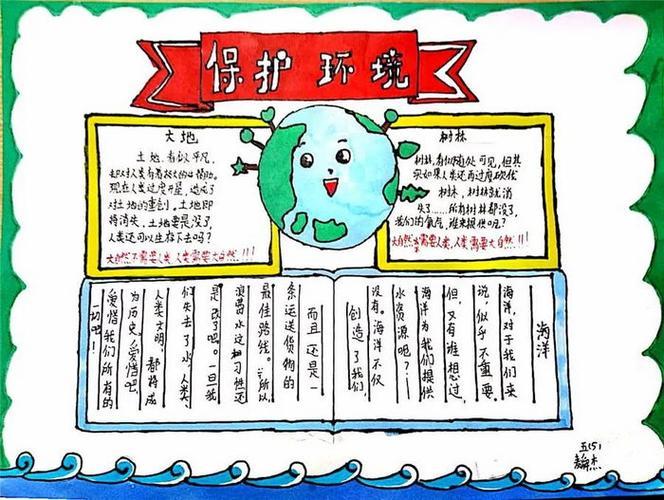 保护环境
大地
土地,看似平凡,
却对人类有着极大的帮助。
现在人类过度开垦,造成了
对土地的重创。土地即
将消失,土地要是没了,
人类还可以生存下去吗?
大自然不需要人类,人类需要大自然!!!
树林
树林,看似随处可见,但其
实如果人类还再过度砍伐
树林,树林就消
失了……所有树林都没了,
我们的氧气,谁来提供呢?
大自然不需要人类,人类需要大自然!!!
海洋
海洋,对于我们来
说,似乎不重要。
但,又有谁想过,
海洋为我们提供
水资源呢?——
没有。海洋不仅
创造了我们,
而且还是一
条运送货物的
最佳路线。……所以,
浪费水这种习性还
是改了吧。一旦我
们失去了水,人类、
人类文明,都将成
为历史。爱惜吧,
爱惜我们所有的
一切吧!
五(5)